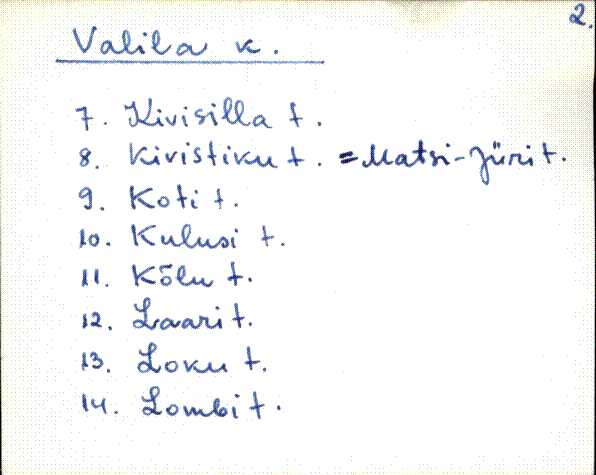 2.
Valila k.
7. Kivisilla t.
8. Kivistiku t. = Matsi-Jüri t.
9. Koti t.
10. Kulusi t.
11. Kõlu t.
12. Laari t.
13. Loku t.
14. Lombi t.